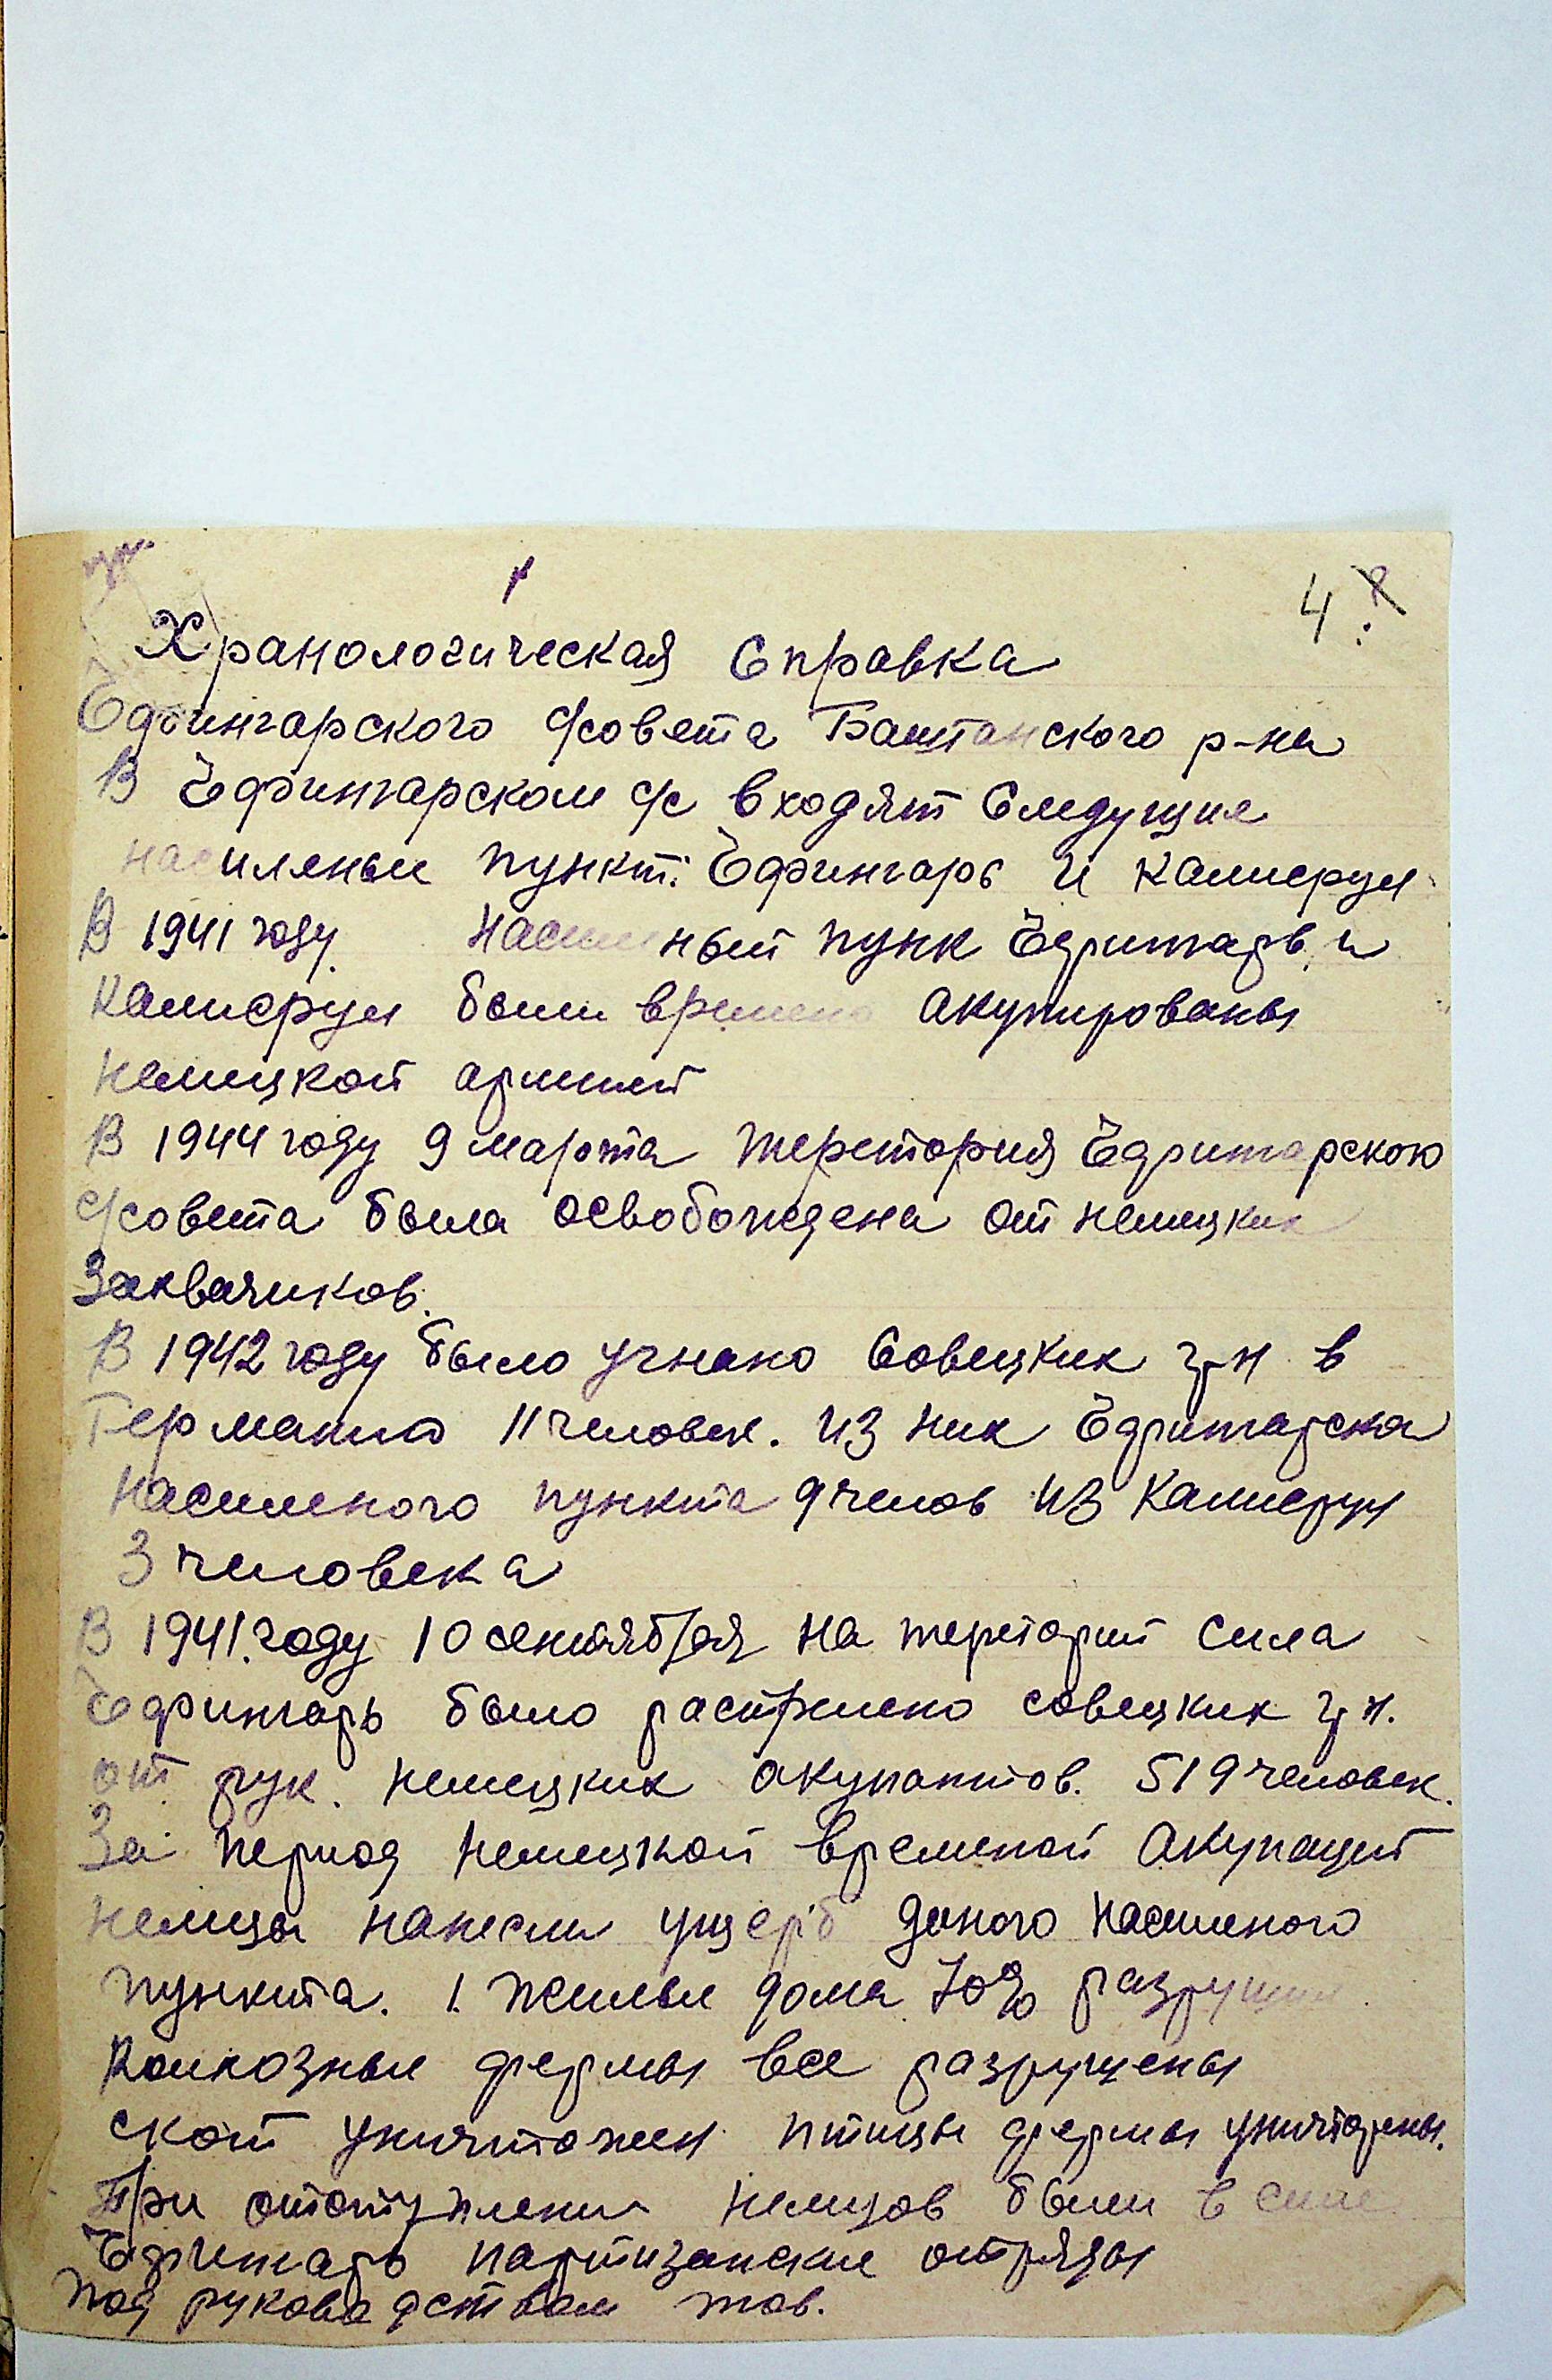 4
Хранологическая Справка
Ефингарского с/совета Баштанского р-на
В Ефингарском с/с входят Следущие
насиленые пункт: Ефингарь и Камиерун
В 1941 году насиленый пунк Ефингарь и
Камиерун были времено акупированы
немецкой армией
В 1944 году 9 марта теретория Ефингарского
с/совета была освобождена от немецких
Захвачиков.
В 1942 году было угнано Совецких гр-н в
Германию 11 человек. из них Ефингарска
насиленого пункта 9 челов из Камиерун
3 человека
В 1941 году 10 сентября на тереторий сила
Ефингарь было растрелено совецких гр-н.
от рук немецких акупантов. 519 человек.
За период немецкой временой Акупацей
немцы нанесли ущерб даного насиленого
пункта. 1. жилые дома 70% разрушили
Колхозные фермы все разрушены
скот уничтожен птицы фермы уничтожены.
При отступлении немцов были в силе
Ефингарь партизанские отряды
под руководством тов.